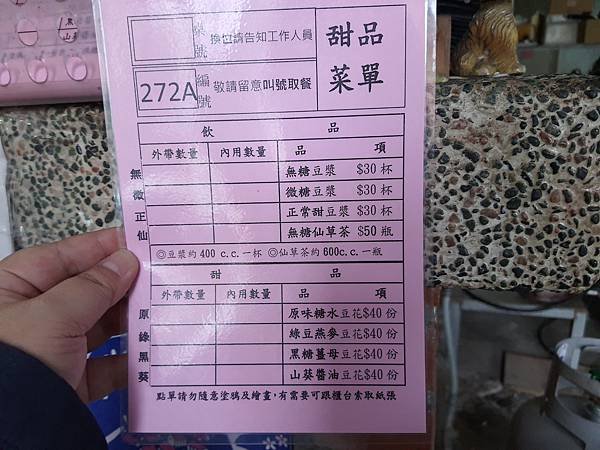 桌號
換位請告知工作人員
甜品
菜單
272A
編號
敬請留意叫號取餐
飲品
外帶數量 內用數量 品項
無 無糖豆漿 $30 杯
微 微糖豆漿 $30 杯
正 正常甜豆漿 $30 杯
仙 無糖仙草茶 $50 瓶
◎豆漿約 400 c.c.一杯 ◎仙草茶約600c.c.一瓶
甜品
外帶數量 內用數量 品項
原 原味糖水豆花$40 份
綠 綠豆燕參豆花$40 份
黑 黑糖薑母豆花$40 份
葵 山葵醬油豆花$40 份
點單請勿隨意塗鴉及繪畫,有需要可跟櫃台索取紙張